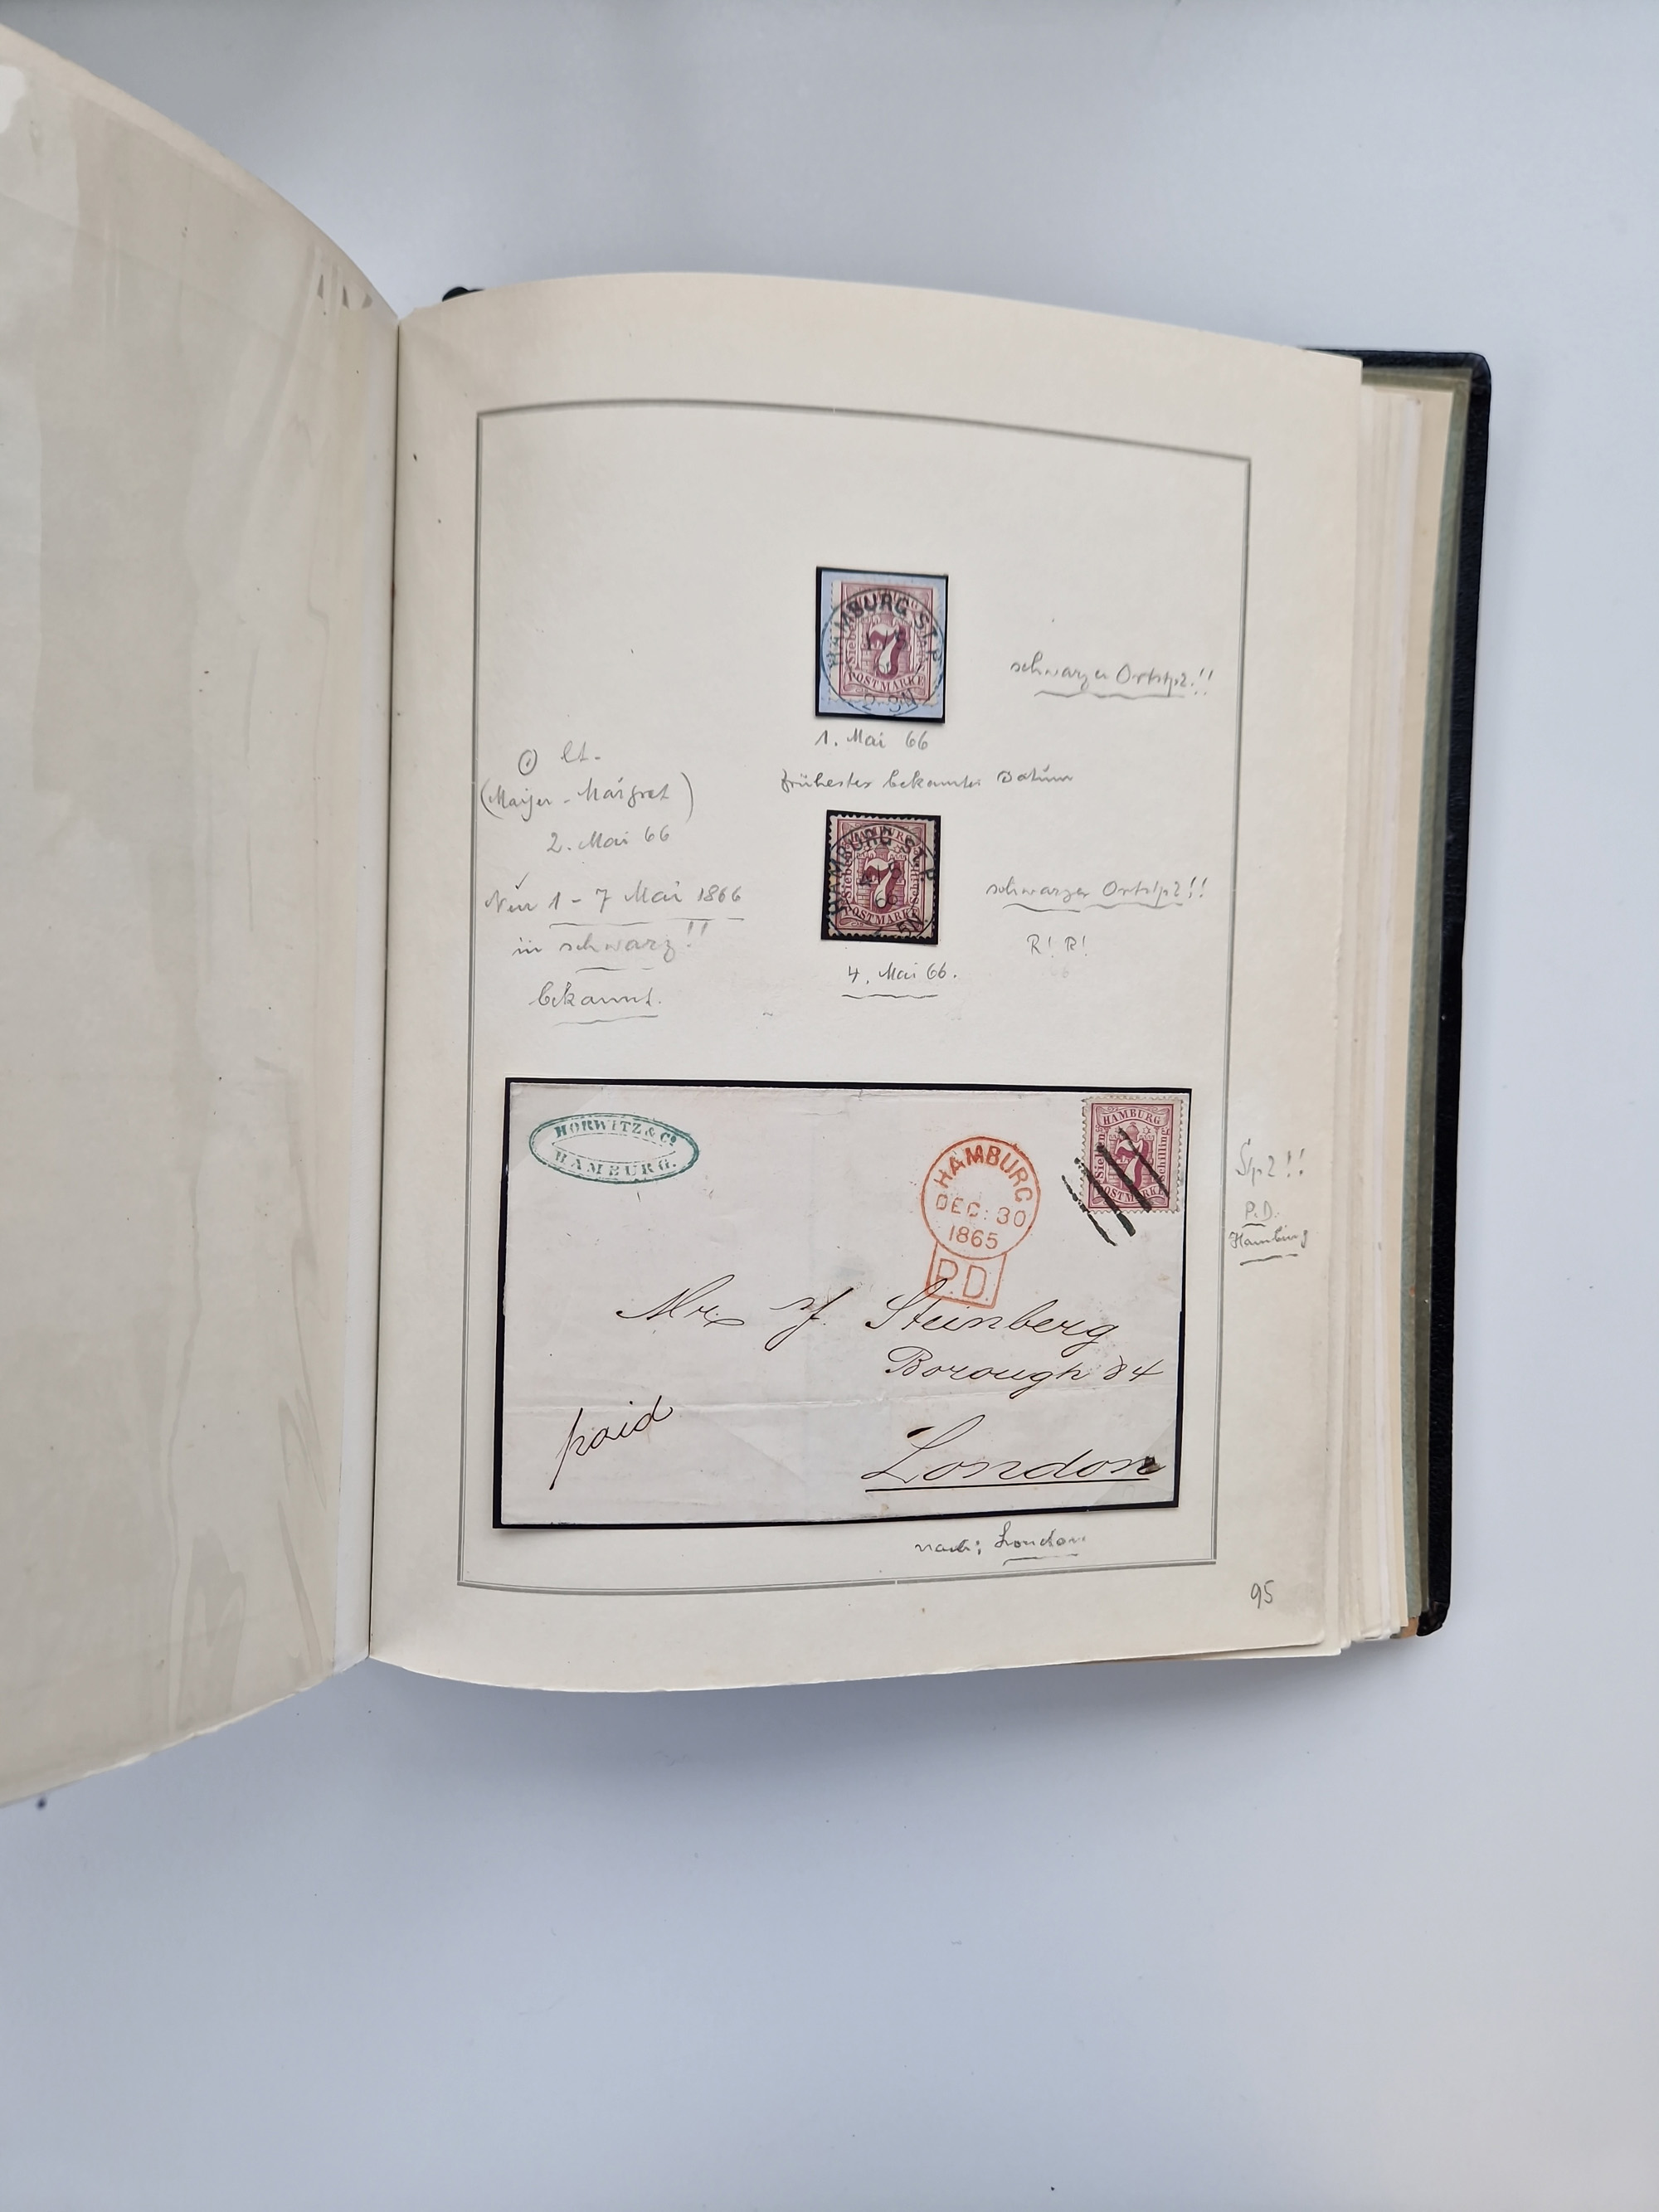 HAMBURG ST.P.
7
POSTMARKE
schwarzer Ortstpl!!
1. Mai 66
frühester bekannter Datum
lt.
(Maijer - Margret)
2. Mai 66
HAMBURG
HAMBURG ST.P.
7
POSTMARKE
Nur 1 - 7 Mai 1866
schwarzer Ortstpl!!
in schwarz!!
R! R!
bekannt.
4. Mai 66.
HORWITZ & Co.
HAMBURG.
HAMBURG
DEC: 30
1865
P.D.
HAMBURG
Sieben
7
Schilling
POSTMARKE
Stpl!!
P.D.
Hamburg
Mr. Steinberg
Borough 84
paid
London
nach: London
95